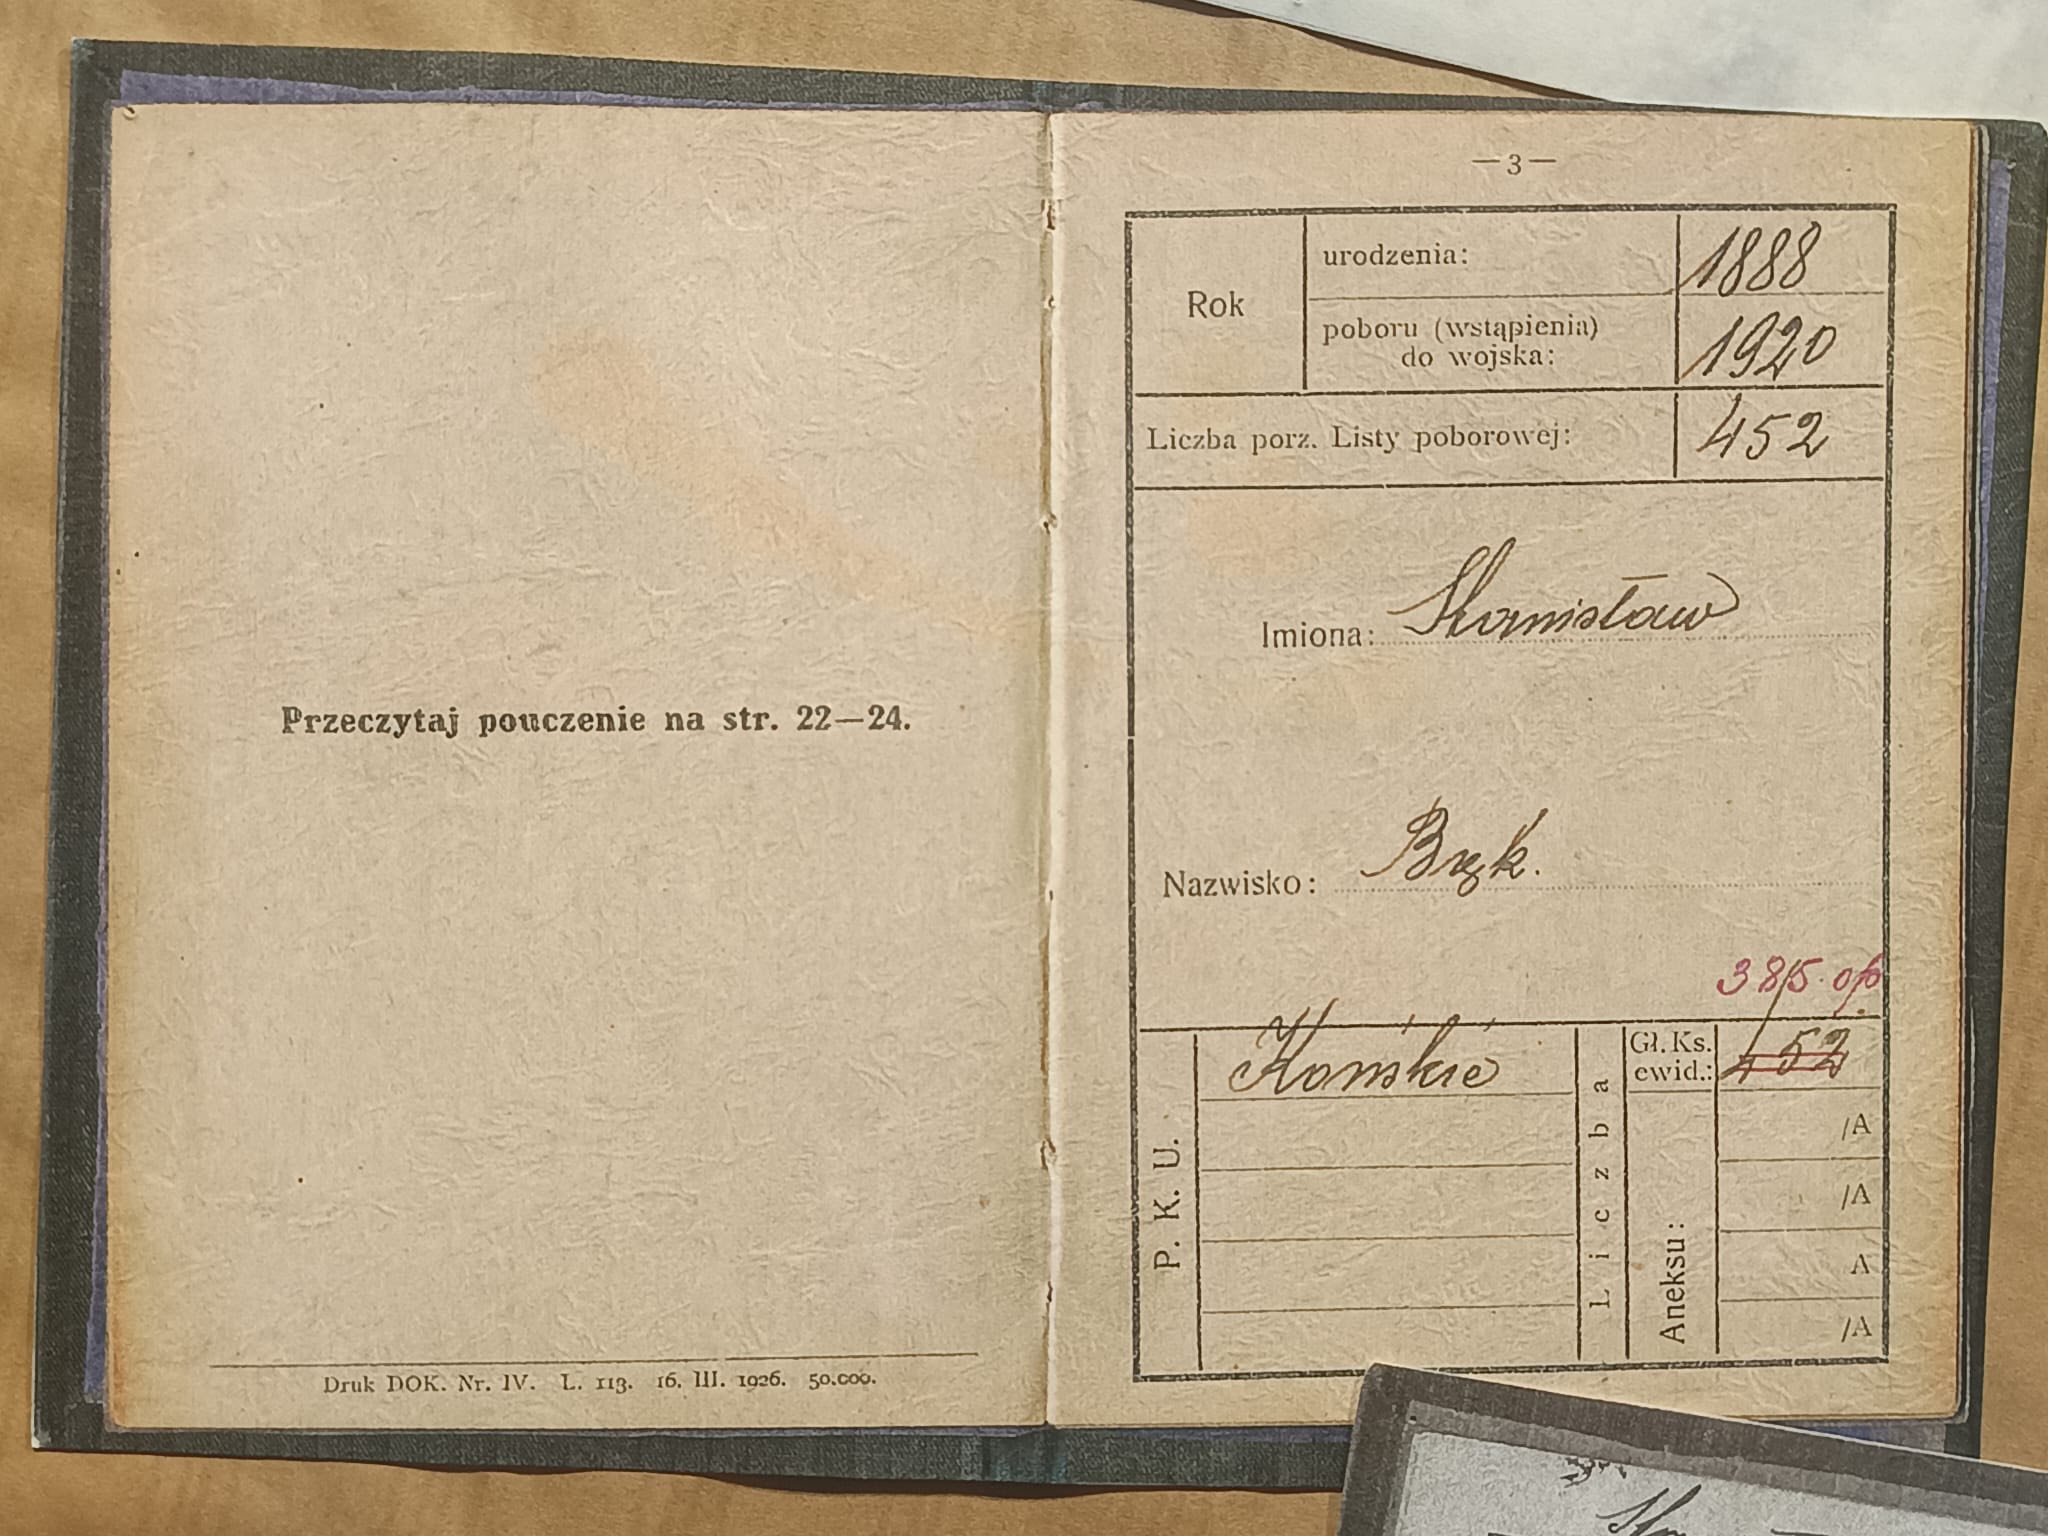 Przeczytaj pouczenie na str. 22—24.
Druk DOK. Nr. IV. L. 113. 16. III. 1926. 50.000.
—3—
Rok
urodzenia: 1888
poboru (wstąpienia)
do wojska: 1920
Liczba porz. Listy poborowej: 452
Imiona: Stanisław
Nazwisko: Bręk.
385.
P. K. U.
Końskie
Liczba
Gł. Ks.
ewid.: 452
Aneksu:
/A
/A
A
/A